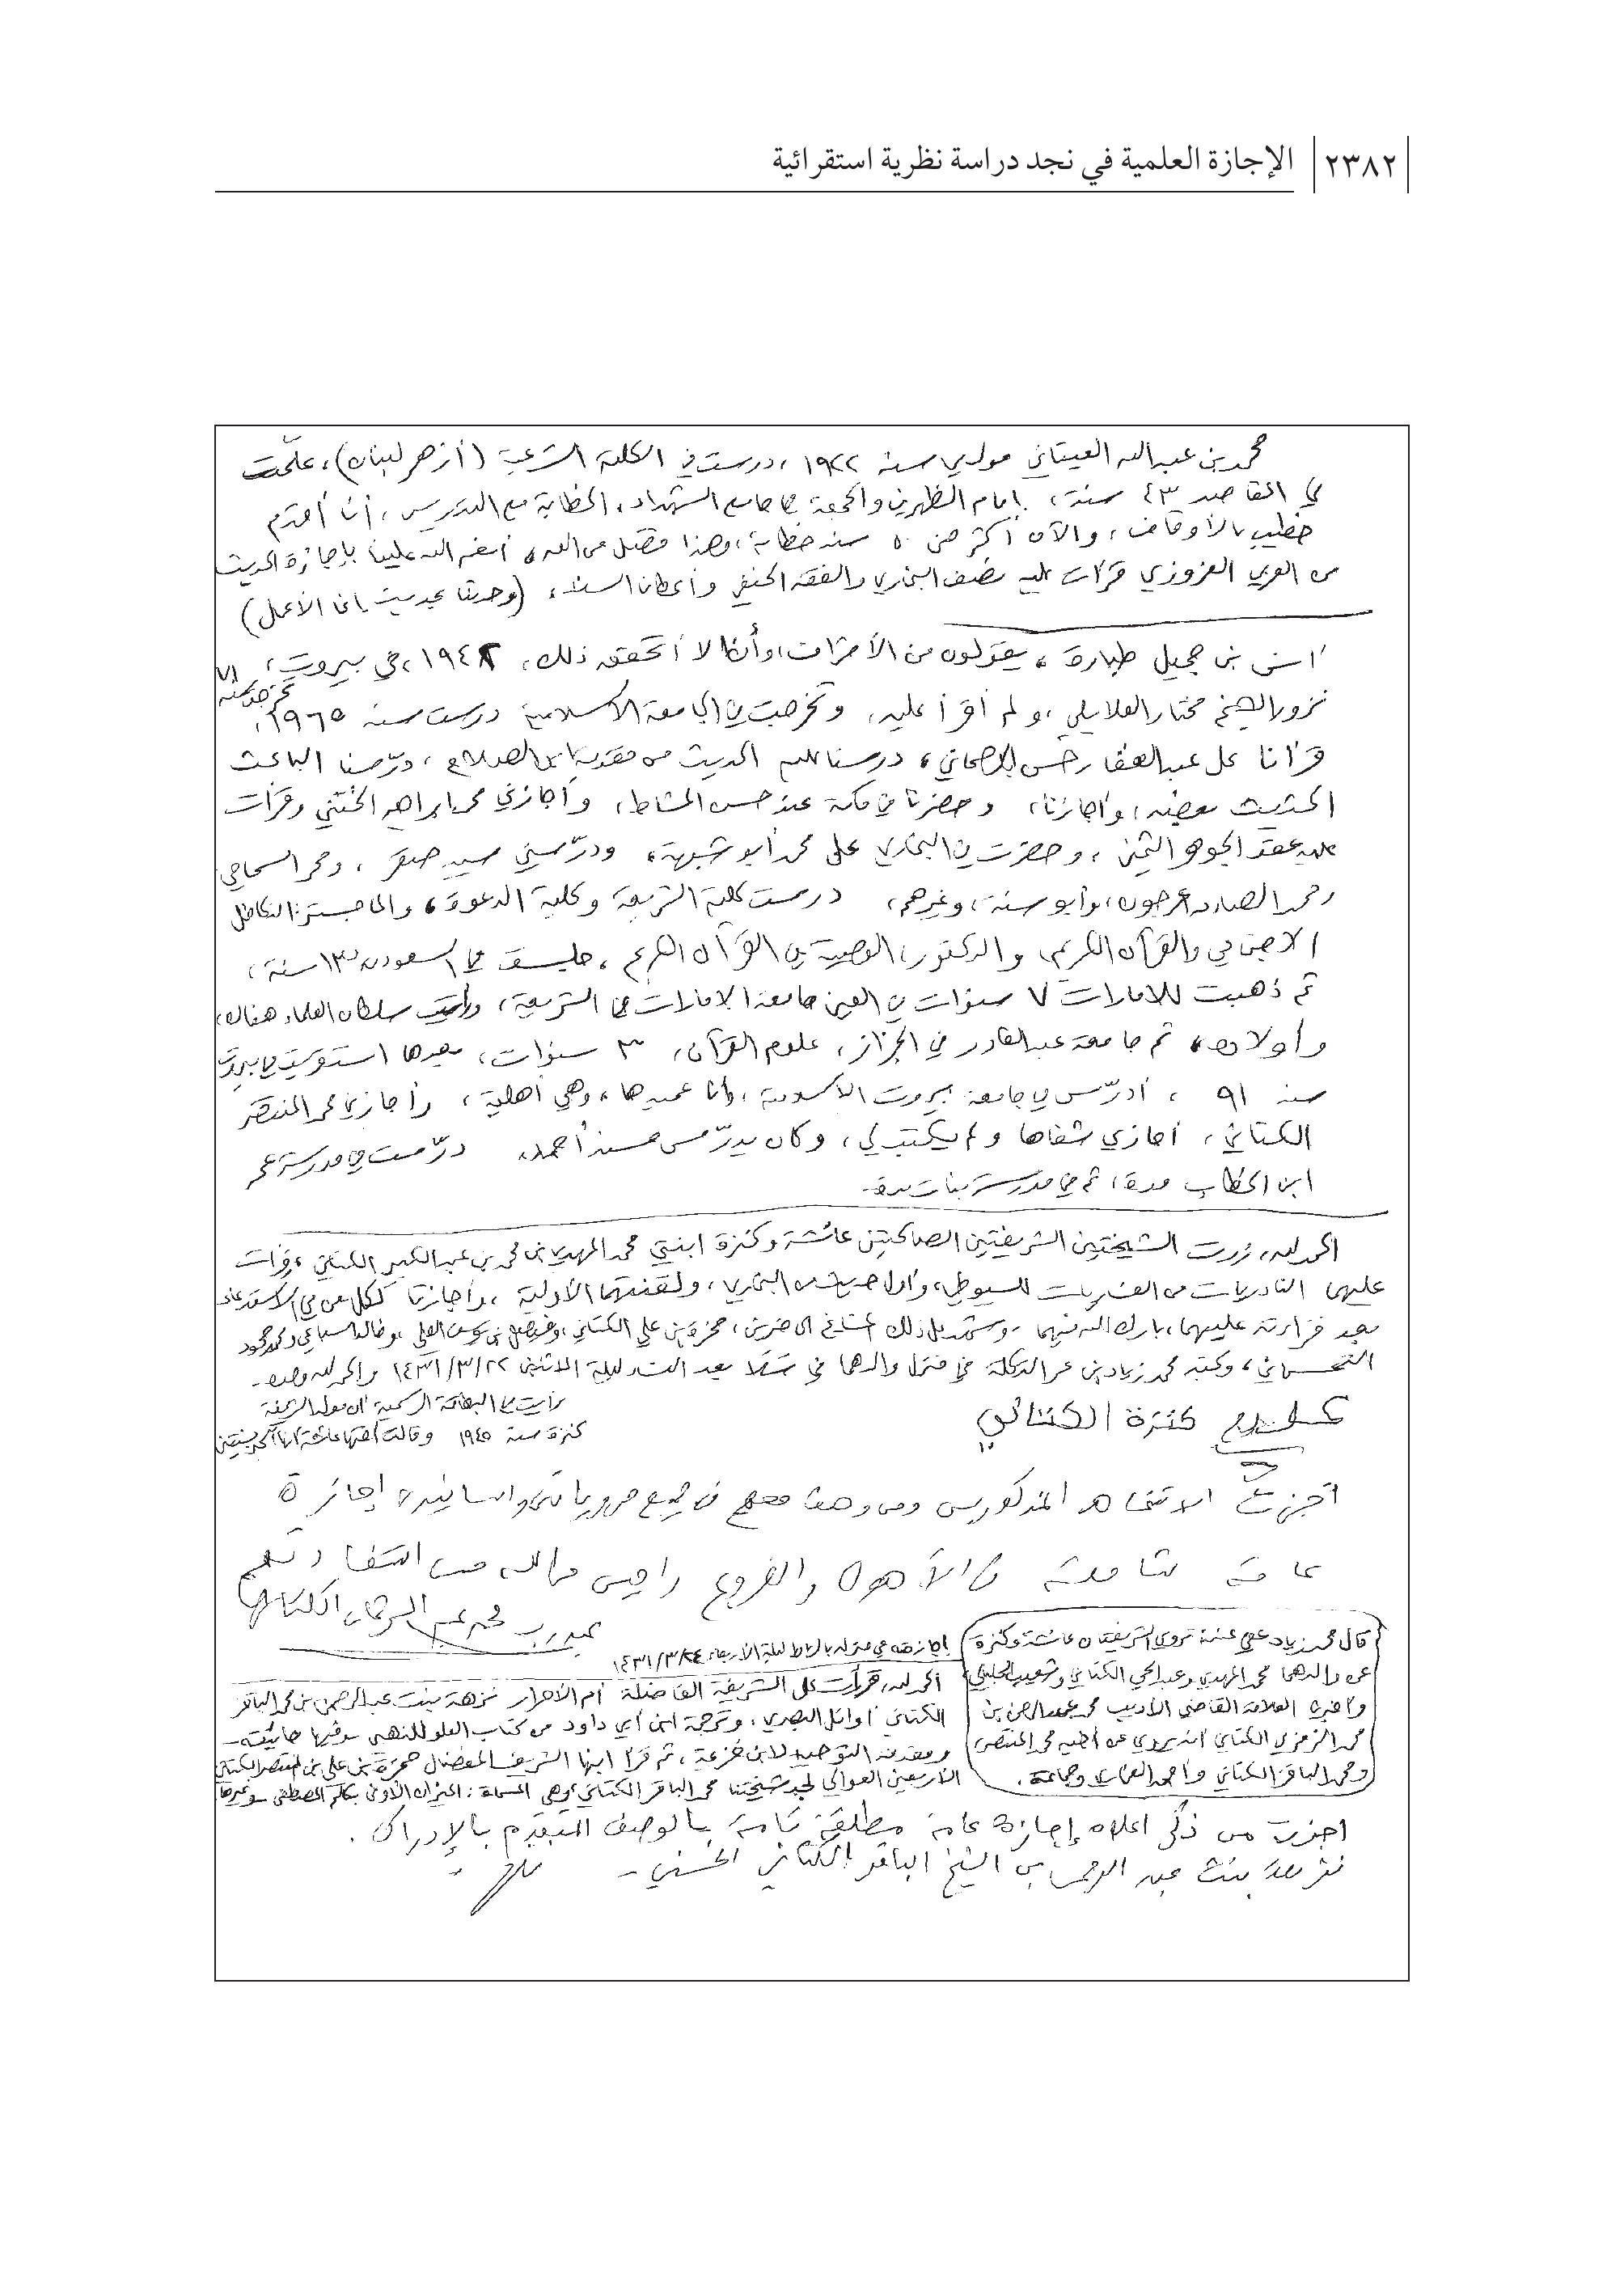 ٢٣٨٢ الإجازة العلمية في نجد دراسة نظرية استقرائية
محمد بن عبد الله العيتاني مولدي سنة ١٩٢٢، درست في الكلية الشرعية (أزهر لبنان)، علّمت
في المقاصد ٤٣ سنة، إمام الظهرين والجمعة في جامع الشهداء، الخطابة مع التدريس، أنا أقدم
خطيب بالأوقاف، والآن أكثر من ٥٠ سنة خطابة، وهذا فضل من الله، أنعم الله علينا بإجازة الحديث
من العربي العزوزي قرأت عليه نصف البخاري والفقه الحنفي وأعطانا السند، (وحدثنا بحديث إنما الأعمال)
أنس بن جميل طبارة، يقولون من الأشراف، وأنا لا أتحقق ذلك، ١٩٤٨، في بيروت،
نزور الشيخ مختار العلايلي، ولم أقرأ عليه، وتخرجت من الجامعة الإسلامية درست سنة ١٩٦٥،
قرأنا على عبد الغفار حسن الرحماني، درسنا عليه الحديث من مقدمة ابن الصلاح، ودرّسنا الباعث
الحثيث بعضه، وأجازنا، وحضرنا في مكة عند حسن المشاط، وأجازني محمد إبراهيم الختني وقرأت
عليه عقد الجوهر الثمين، وحضرت في البخاري على محمد أبو شهبة، ودرّسني سيد صقر، ومحمد السماحي
ومحمد الصادق عرجون، وأبو سنة، وغيرهم، درست كلية الشريعة وكلية الدعوة، والماجستير: التكافل
الاجتماعي والقرآن الكريم، والدكتور: الوصية في القرآن الكريم، جلست في السعودية ١٣ سنة،
ثم ذهبت للإمارات ٧ سنوات في العين جامعة الإمارات في الشريعة، ورأيت سلطان العلماء هناك،
وأولاده، ثم جامعة عبد القادر في الجزائر، علوم القرآن، ٣ سنوات، بعدها استقريت في بيروت
سنة ٩١، أدرّس في جامعة بيروت الإسلامية، وأنا عميدها، وهي أهلية، وأجازني محمد المنتصر
الكتاني، أجازني شفاها ولم يكتب لي، وكان يدرّس مسند أحمد، درّست في مدرسة عمر
ابن الخطاب مدة، ثم في مدرسة بنات
الحمد لله، زرت الشيختين الشريفتين الصالحتين عائشة وكنزة ابنتي محمد المهدي بن محمد بن عبد الكبير الكتاني، وقرأت
عليهما النادريات من العشريات للسيوطي، وأول حديث من البخاري، ولقنتهما الأولية، وأجازتا لكل من في الاستدعاء
بعد قراءته عليهما، بارك الله فيهما، وشهد على ذلك المشايخ الحاضرين، حمزة بن علي الكتاني، وفيصل بن يوسف العلي، وخالد السباعي ومحمد محمود
وكتبه محمد زياد بن عمر التكلة في منزل والدهما في سلا بعد العشاء ليلة الاثنين ١٤٣١/٣/٢٢ والحمد لله وحده
رأيت في البطاقة الرسمية أن مولد الشريفة
كنزة سنة ١٩٤٥ وقالت أختها عائشة إنها أكبر بسنتين
كنزة الكتاني
أجزت الأشخاص المذكورين ومن معهم في جميع مروياتي وأسانيدي إجازة
عامة شاملة في الأصول والفروع
محمد عبد الكتاني
أجازهم في منزله بالرباط ليلة الأربعاء ١٤٣١/٣/٢٤
قال محمد زياد عفي عنه: تروي الشريفتان عائشة وكنزة
عن والدهما محمد المهدي وعبد الحي الكتاني وشعيب الجليلي
وأخبرني العلامة القاضي الأديب محمد عبد الرحمن بن
محمد الزمزمي الكتاني أنه يروي عن أخيه محمد المنتصر
ومحمد الباقر الكتاني وأحمد الغماري وجماعة.
الحمد لله، قرأت على الشريفة الفاضلة أم الأسرار نزهة بنت عبد الرحمن بن محمد الباقر
الكتاني أوائل البصري، وترجمة ابن أبي داود من كتاب العلو للذهبي وفيها حائيته
ومقدمة التوحيد لابن خزيمة، ثم قرأ ابنها الشريف المفضال حمزة بن علي بن المنتصر الكتاني
الأربعين العوالي لجد شيختنا محمد الباقر الكتاني وهي المسماة:
أجزت من ذكر أعلاه إجازة عامة مطلقة تامة بالوصف المتقدم بالإدراك.
نزهة بنت عبد الرحمن بن الشيخ الباقر الكتاني الحسني